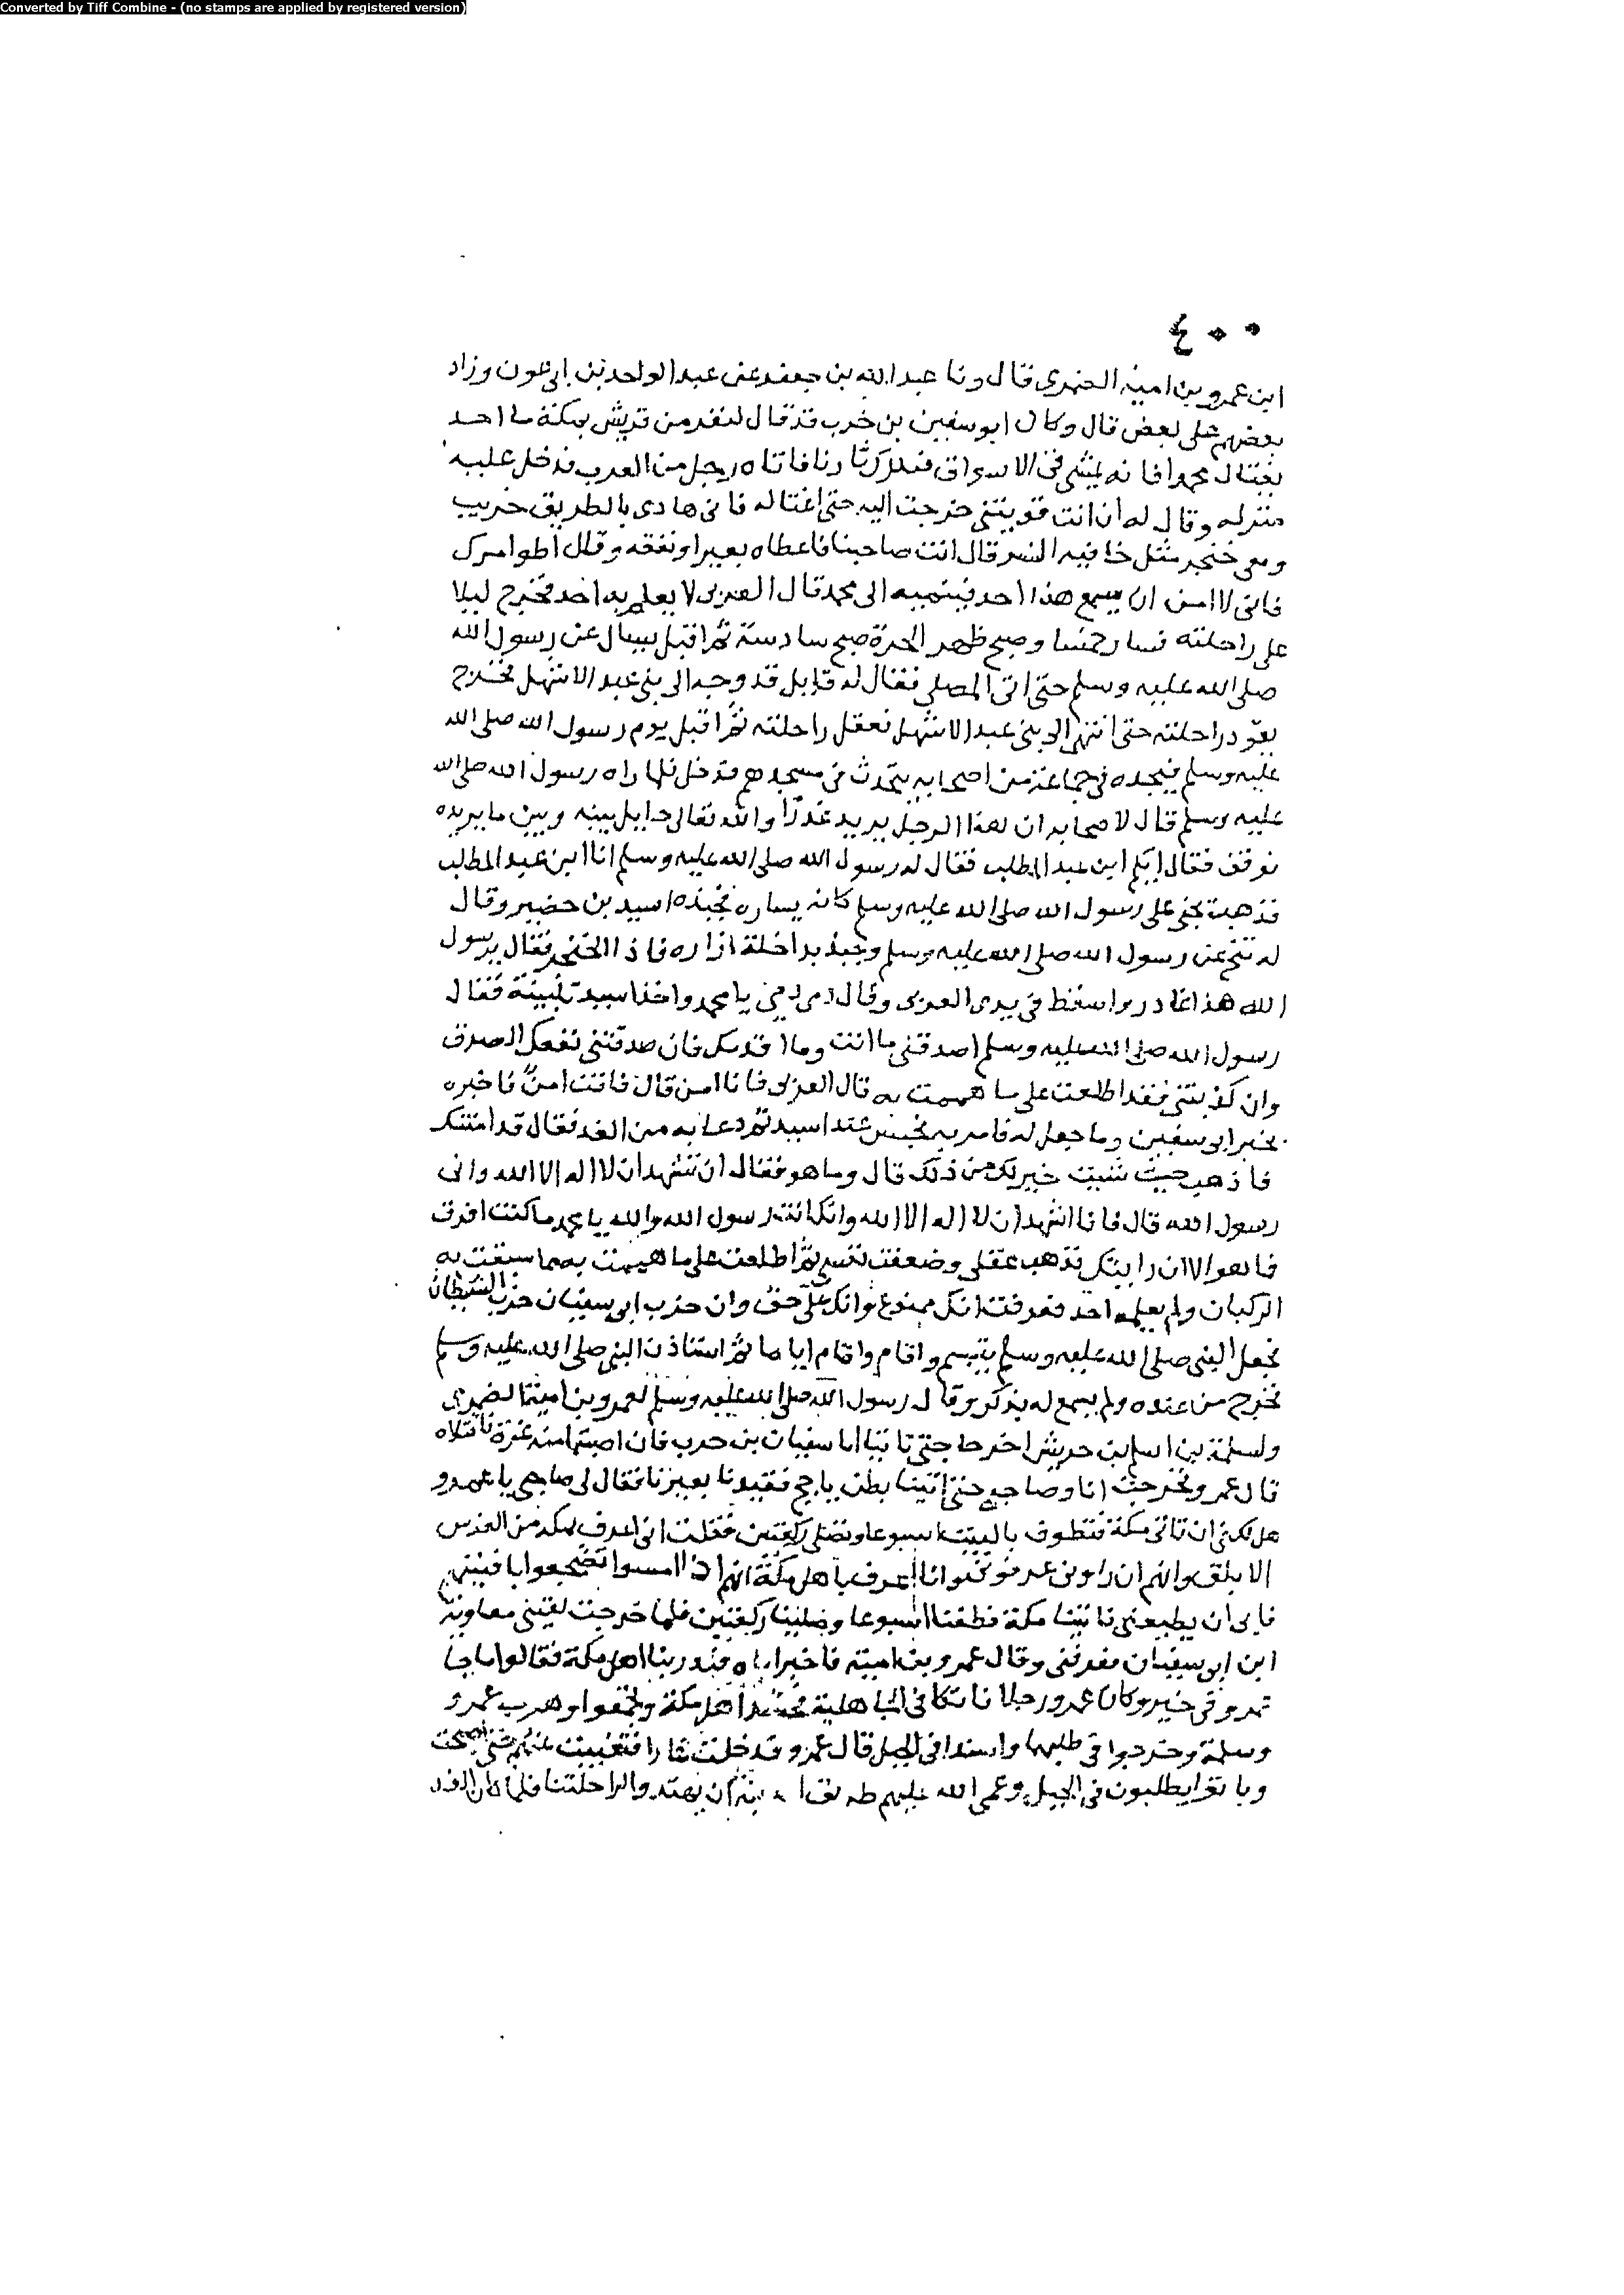 Converted by Tiff Combine - (no stamps are applied by registered version)
٤٠٠
ابن عمرو بن امية الضمرى قال ونا عبد الله بن جعفر عن عبد الواحد بن ابى عون وزاد
بعضهم على بعض قال وكان ابو سفين بن حرب قد قال لنفر من قريش بمكة ما احد
يغتال محمدا فانه يمشى فى الاسواق فندرك ثارنا فاتاه رجل من العرب فدخل عليه
منزله وقال له ان انت قويتنى خرجت اليه حتى اغتاله فانى هادى بالطريق خريت
ومعى خنجر مثل خافية النسر قال انت صاحبنا فاعطاه بعيرا ونفقه وقال اطو امرك
فانى لا امن ان يسمع هذا احد فينميه الى محمد قال العربى لا يعلم به احد فخرج ليلا
على راحلته فسار خمسا وصبح ظهر الحرة صبح سادسة ثم اقبل يسال عن رسول الله
صلى الله عليه وسلم حتى اتى المصلى فقال له قايل قد توجه الى بنى عبد الاشهل فخرج
يقود راحلته حتى انتهى الى بنى عبد الاشهل فعقل راحلته ثم اقبل يوم رسول الله صلى الله
عليه وسلم فيجده فى جماعة من اصحابه يتحدث فى مسجدهم فدخل فلما راه رسول الله صلى الله
عليه وسلم قال لاصحابه ان هذا الرجل يريد غدرا والله تعالى حايل بينه وبين ما يريده
فوقف فقال ايكم ابن عبد المطلب فقال له رسول الله صلى الله عليه وسلم انا ابن عبد المطلب
فذهب يجنى على رسول الله صلى الله عليه وسلم كانه يساره فجبذه اسيد بن حضير وقال
له تنح عن رسول الله صلى الله عليه وسلم وجبذ بداخلة ازاره فاذا الخنجر فقال يرسول
الله هذا غادر واسقط فى يدى العربى وقال دمى دمى يا محمد واخذ اسيد تلبيبة فقال
رسول الله صلى الله عليه وسلم اصدقنى ما انت وما اقدمك فان صدقتنى نفعك الصدق
وان كذبتنى فقد اطلعت على ما هممت به قال العربى فانا امن قال فانت امن فاخبره
بخبر ابى سفين وما جعل له فامر به فحبس عند اسيد ثم دعا به من الغد فقال قد امنتك
فاذهب حيث شيت خير لك من ذلك قال وما هو فقال ان تشهد ان لا اله الا الله وانى
رسول الله قال فانا اشهد ان لا اله الا الله وانك انت رسول الله والله يا محمد ما كنت افرق
فما هو الا ان رايتك فذهب عقلى وضعفت نفسى ثم اطلعت على ما هممت به مما سبقت به
الركبان ولم يعلمه احد فعرفت انك ممنوع وانك على حق وان حزب ابى سفيان حزب الشيطان
فجعل النبى صلى الله عليه وسلم يتبسم واقام واقام اياما ثم استاذن النبى صلى الله عليه وسلم
فخرج من عنده ولم يسمع له بذكر وقال رسول الله صلى الله عليه وسلم لعمرو بن امية الضمرى
ولسلمة بن اسلم بن حريش اخرجا حتى تاتيا ابا سفيان بن حرب فان اصبتما منه غرة فاقتلاه
قال عمرو فخرجت انا وصاحبى حتى اتينا بطن ياجج فقيدنا بعيرنا فقال لى صاحبى يا عمرو
هل لك فى ان تاتى مكة فتطوف بالبيت اسبوعا وتصلى ركعتين فقلت انى اعرف بمكة من الفرس
الابلق وانهم ان راونى عرفونى وانا اعرف باهل مكة انهم اذا امسوا انضجعوا بافنيتهم
فابى ان يطيعنى فاتينا مكة فطفنا اسبوعا وصلينا ركعتين فلما خرجت لقينى معاوية
ابن ابى سفيان فعرفنى وقال عمرو بن امية فاخبر اباه فنذر بنا اهل مكة فقالوا ما جا
عمرو فى خير وكان عمرو رجلا فاتكا فى الجاهلية فحشد اهل مكة وتجمعوا وهرب عمرو
وسلمة وخرجوا فى طلبهما واسندا فى الجبل قال عمرو فدخلت غارا فتغيبت عنهم حتى اصبحت
وباتوا يطلبون فى الجبل وعمى الله عليهم طريق ان يهتدوا لراحلتنا فلما كان الغد